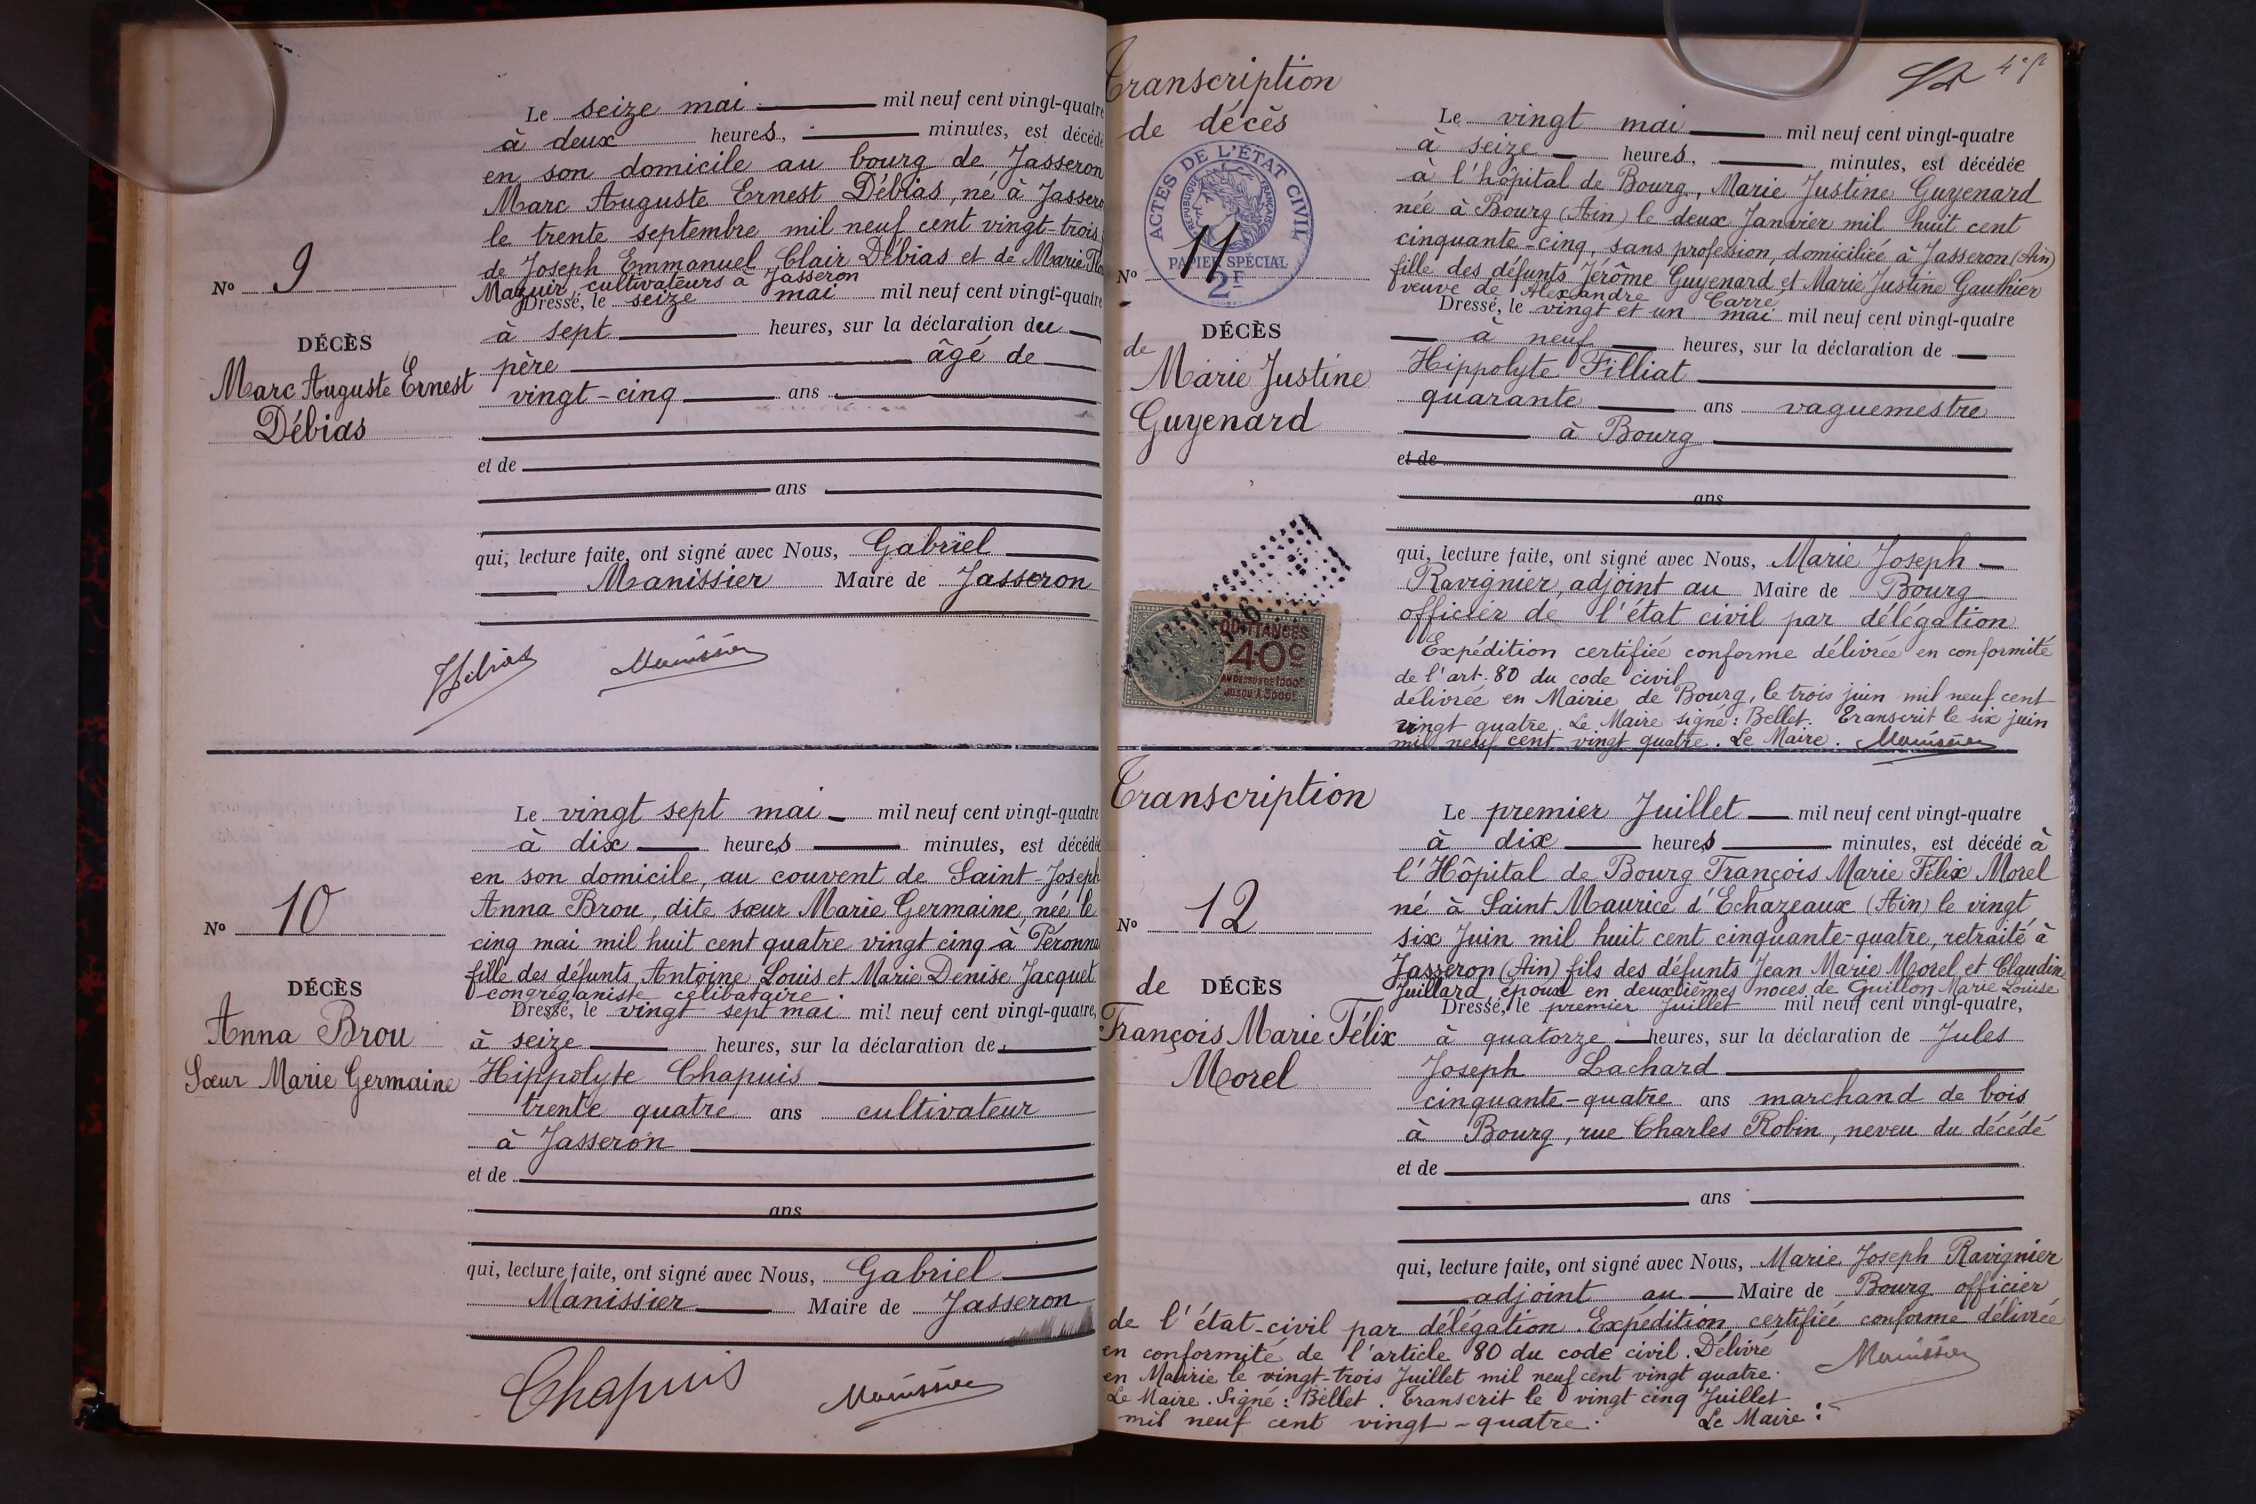 Le seize mai mil neuf cent vingt-quatre
à deux heures, minutes, est décédé
en son domicile au bourg de Jasseron
Marc Auguste Ernest Débias, né à Jassero
le trente septembre mil neuf cent vingt-trois
de Joseph Emmanuel Clair Débias et de Marie
Mazuir, cultivateurs à Jasseron
Nº 9
Dressé, le seize mai mil neuf cent vingt-quatre
à sept heures, sur la déclaration du
DÉCÈS
père âgé de
Marc Auguste Ernest
vingt-cinq ans
Débias
et de
ans
qui, lecture faite, ont signé avec Nous, Gabriel
Manissier Maire de Jasseron
Débias Manissier
Le vingt sept mai mil neuf cent vingt-quatre
à dix heures minutes, est décédé
en son domicile, au couvent de Saint-Joseph
Anna Brou, dite sœur Marie Germaine, née le
Nº 10
cinq mai mil huit cent quatre vingt cinq à Péronna
fille des défunts, Antoine Louis et Marie Denise Jacquet
congréganiste célibataire.
DÉCÈS
Dressé, le vingt sept mai mil neuf cent vingt-quatre,
Anna Brou
à seize heures, sur la déclaration de
Sœur Marie Germaine
Hippolyte Chapuis
trente quatre ans cultivateur
à Jasseron
et de
ans
qui, lecture faite, ont signé avec Nous, Gabriel
Manissier Maire de Jasseron
Chapuis Manissier
Transcription
de décès
Le vingt mai mil neuf cent vingt-quatre
à seize heures, minutes, est décédée
à l'hôpital de Bourg, Marie Justine Guyenard
née à Bourg (Ain) le deux Janvier mil huit cent
cinquante-cinq, sans profession, domiciliée à Jasseron (Ain)
fille des défunts Jérôme Guyenard et Marie Justine Gauthier
veuve de Alexandre Carré
ACTES DE L'ÉTAT CIVIL
RÉPUBLIQUE FRANÇAISE
PAPIER SPÉCIAL
2F
Nº 11
Dressé, le vingt et un mai mil neuf cent vingt-quatre
à neuf heures, sur la déclaration de
de DÉCÈS
Marie Justine
Guyenard
Hippolyte Filliat
quarante ans vaguemestre
à Bourg
et de
ans
qui, lecture faite, ont signé avec Nous, Marie Joseph
Ravignier, adjoint au Maire de Bourg
officier de l'état civil par délégation
Expédition certifiée conforme délivrée en conformité
de l'art. 80 du code civil
délivrée en Mairie de Bourg, le trois juin mil neuf cent
vingt quatre. Le Maire signé : Bellet. Transcrit le six juin
mil neuf cent vingt quatre. Le Maire. Manissier
QUITTANCES
40c
AU DESSUS DE 1000F
JUSQU'A 3000F
Transcription
Le premier Juillet mil neuf cent vingt-quatre
à dix heures minutes, est décédé à
l'Hôpital de Bourg François Marie Félix Morel
né à Saint Maurice d'Echazeaux (Ain) le vingt
Nº 12
six Juin mil huit cent cinquante-quatre, retraité à
Jasseron (Ain) fils des défunts Jean Marie Morel et Claudine
Juillard, époux en deuxièmes noces de Guillon Marie Louise
de DÉCÈS
Dressé, le premier Juillet mil neuf cent vingt-quatre,
François Marie Félix
Morel
à quatorze heures, sur la déclaration de Jules
Joseph Lachard
cinquante-quatre ans marchand de bois
à Bourg, rue Charles Robin, neveu du décédé
et de
ans
qui, lecture faite, ont signé avec Nous, Marie Joseph Ravignier
adjoint au Maire de Bourg officier
de l'état-civil par délégation. Expédition certifiée conforme délivrée
en conformité de l'article 80 du code civil. Délivré
en Mairie le vingt-trois Juillet mil neuf cent vingt quatre.
Le Maire. Signé : Bellet. Transcrit le vingt cinq Juillet
mil neuf cent vingt-quatre. Le Maire :
Manissier